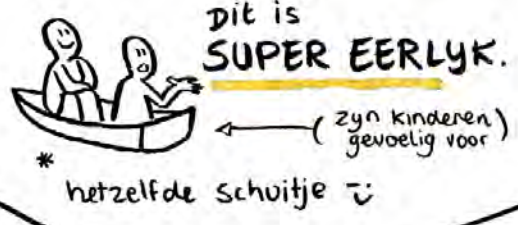 Dit is
SUPER EERLYK.
( zyn kinderen )
gevoelig voor
*
hetzelfde schuitje ü